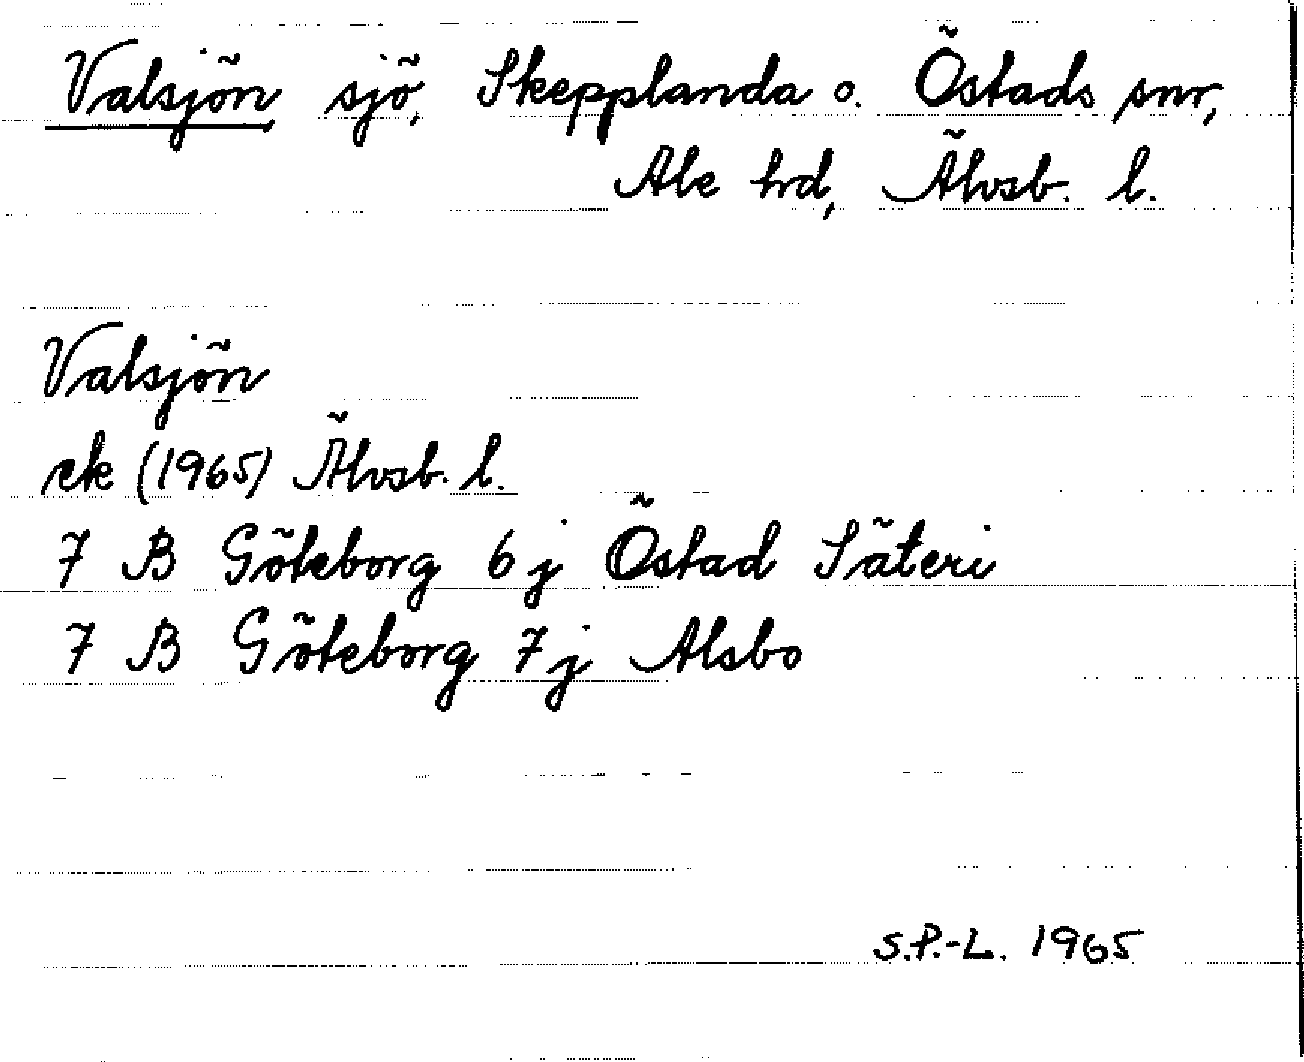 Valsjön sjö, Skepplanda o. Östads snr,
Ale hrd, Älvsb. l.
Valsjön
ek (1965) Älvsb. l.
7 B Göteborg 6 j Östad Säteri
7 B Göteborg 7 j Alsbo
S.P.-L. 1965